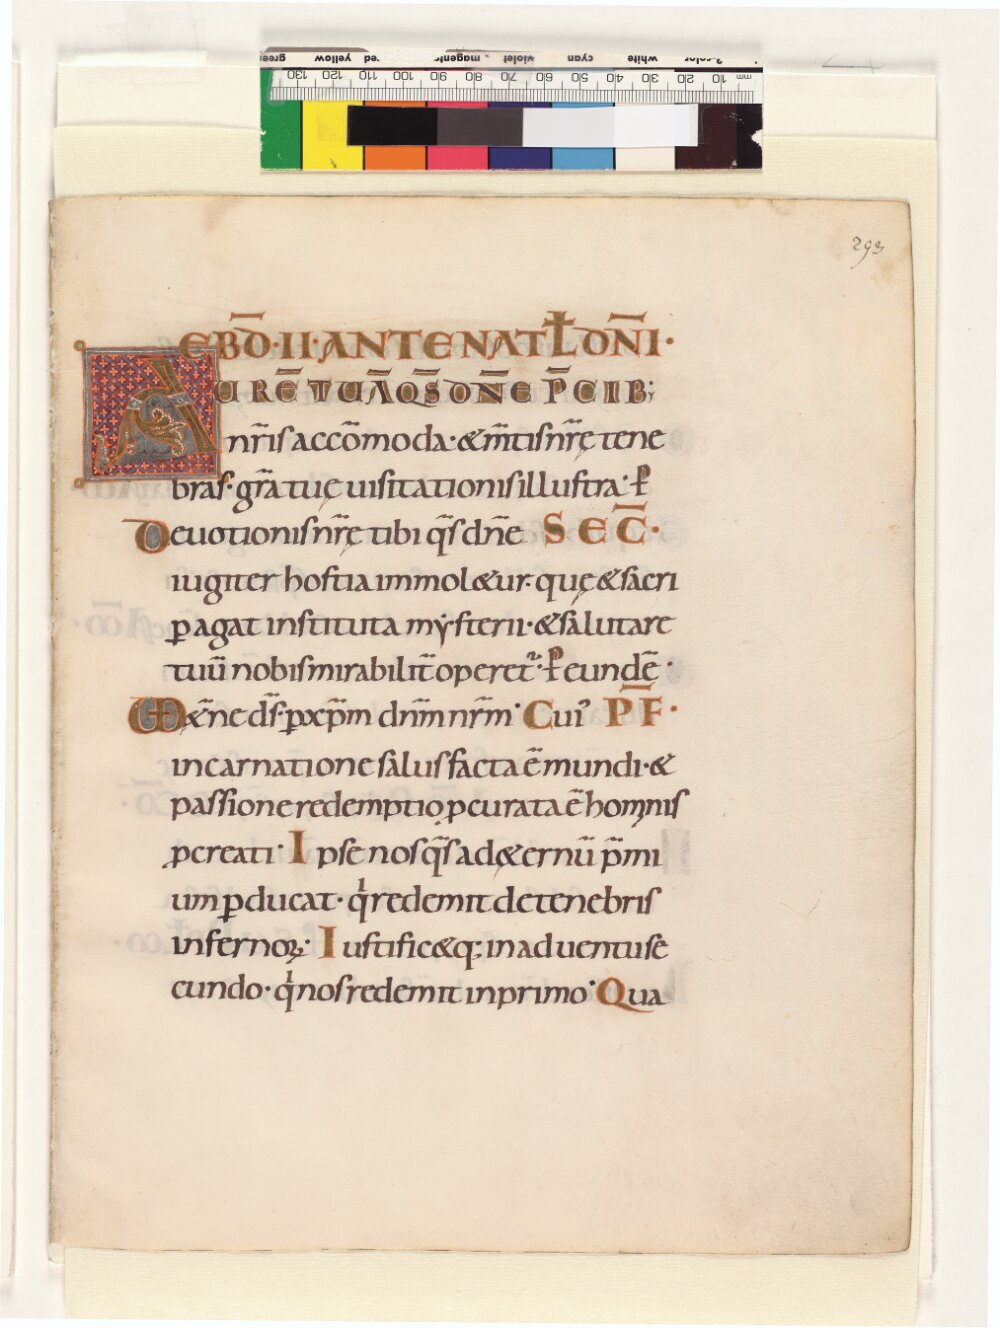 green yellow red magenta violet cyan white 3-color
130 120 110 100 90 80 70 60 50 40 30 20 10 mm
293
EBD̄·II·ANTE NAT̄L DN̄I·
AUREM̄ TUĀ QS̄ DN̄E P̄CIB;
nr̄is accōmoda·&m̄tis nr̄ę tene
bras·gr̄a tuę uisitationis illustra·P̲
Deuotionis nr̄ę tibi qs̄ dn̄e SEC̄·
iugiter hostia immol&ur·quę & sacri
ꝑagat instituta mẏsterii·& salutare
tuū nobis mirabilit̄ operet᷑·P̲ eundē·
&̄ne ds̄·ꝑ xp̄m dn̄m nr̄m· Cui᾽ P̄F·
incarnatione salus facta ē mundi·&
passione redemptio ꝓcurata ē hominis
ꝓcreati· Ipse nos qs̄ ad &ernū p̄mi
um ꝑducat·qı̍ redemit de tenebris
infernoꝝ· Iustific&q; in aduentu se
cundo·qı̍ nos redemit in primo· Qua